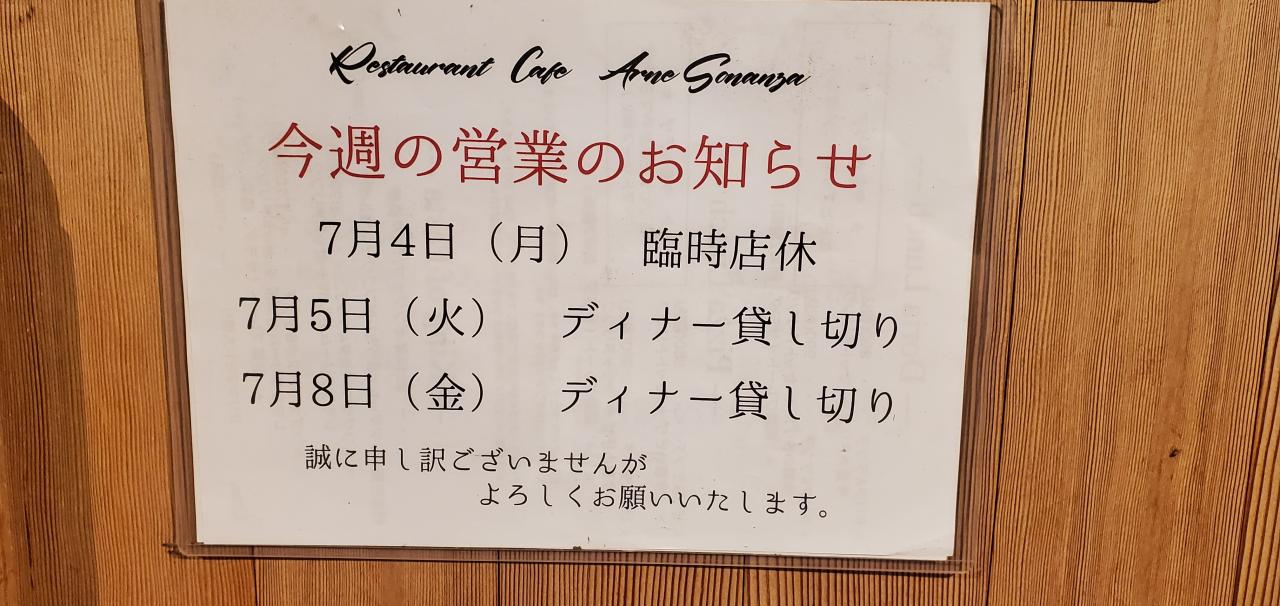 Restaurant Cafe Arne Sonanza
今週の営業のお知らせ
7月4日（月） 臨時店休
7月5日（火） ディナー貸し切り
7月8日（金） ディナー貸し切り
誠に申し訳ございませんが
よろしくお願いいたします。